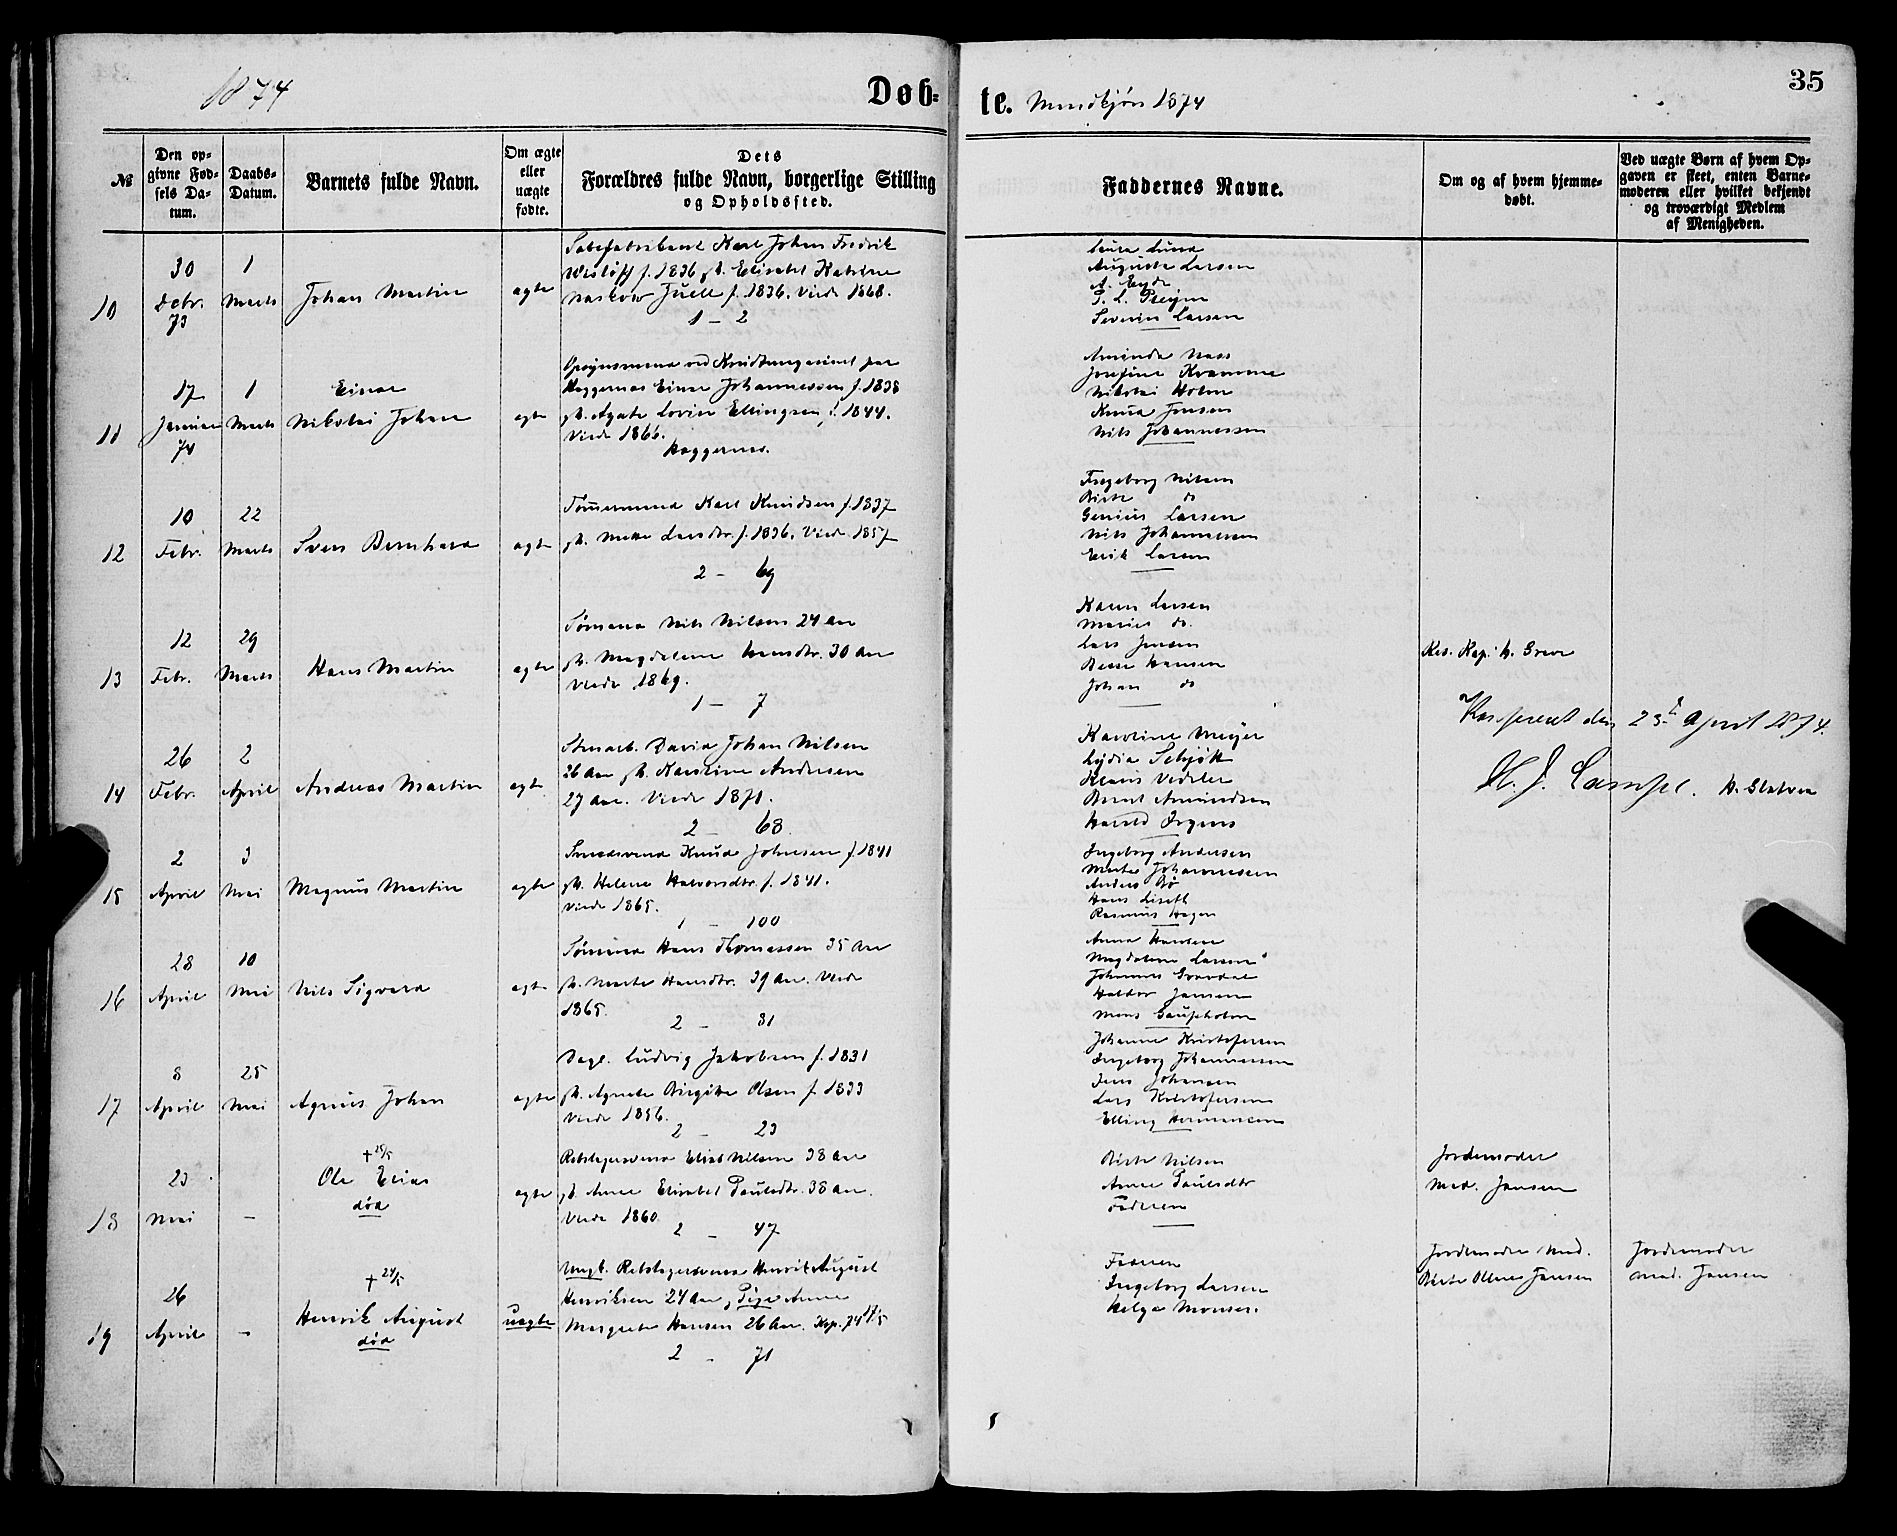 1874
Døb-
te. Mandkjøn 1874
35
№
Den op-
givne Fød-
sels Da-
tum.
Daabs-
Datum.
Barnets fulde Navn.
Om ægte
eller
uægte
fødte.
Dets
Forældres fulde Navn, borgerlige Stilling
og Opholdssted.
Faddernes Navne.
Om og af hvem hjemme-
døbt.
Ved uægte Børn af hvem Op-
gaven er skeet, enten Barne-
moderen eller hvilket bekjendt
og troværdigt Medlem
af Menigheden.
10
30
Debr.
73
1
Marts
Johan Martin
ægte
Karl Johan Fredrik
f. 1836, h. Elisabet Katrine
Juell f. 1836. Viede 1868.
1 – 2
Laura Lund
Augusta Larsen
A. Eyde
Severin Larsen
11
17
Januar
74
1
Marts
Einar
Nikolai Johan
ægte
Opsynsmand ved
Haggernes Einar Johannessen f. 1838
h. Agate Lovise Ellingsen f. 1844.
Viede 1866.
Haggernes.
Aminda Nass
Josefine Kramme
Nikolai Holm
Knud Jensen
Nils Johannessen
12
10
Febr.
22
Marts
Sven Bernhard
ægte
Tømmermand Karl Knudsen f. 1837
h. Mette Larsdtr. f. 1836. Viede 1857
2 – 69
Ingeborg Nilsen
Birte do
Larsen
Nils Johannessen
Erik Larsen
13
12
Febr.
29
Marts
Hans Martin
ægte
Sømand Nils Nilsen 24 Aar
h. Magdalene Hansdtr. 30 Aar
Viede 1869.
1 – 7
Karen Larsen
Marie do.
Lars Jensen
Hansen
Johan do
Res. Kap. H. Greve
14
26
Febr.
2
April
Andreas Martin
ægte
Stenarb. David Johan Nilsen
26 Aar h. Karoline Andersen
27 Aar. Viede 1871.
2 – 68.
Karoline Meyer
Lydia Schjøtt
Klaus Vedeler
Bernt Amundsen
Harald Irgens
Konfereret den 23 April 1874.
15
2
April
3
Mai
Magnus Martin
ægte
Smedsvend Knud Johnsen f. 1841
h. Helene Halvorsdtr. f. 1841.
Viede 1865.
1 – 100
Ingeborg Andersen
Marta Johannessen
Anders Bø
Hans Liseth
Rasmus Hagen
16
28
April
10
Mai
Nils Sigvard
ægte
Sømand Hans Thomassen 35 Aar
h. Marte Hansdtr. 39 Aar. Viede
1865.
2 – 31
Anna Hansen
Magdalene Larsen
Johannes Gravdal
Halder Jansen
Mons Gaupholm
17
8
April
25
Mai
Agnus Johan
ægte
Dagl. Ludvig Jakobsen f. 1831
h. Agnete Birgitte Olsen f. 1833
Viede 1856.
2 – 23
Johanne Kristofersen
Ingeborg Johannessen
Jens Johansen
Lars Kristofersen
Elling Hermansen
18
23
Mai
–
† 25/5
Ole Elias
død
ægte
Rebslagersvend Elias Nilsen 38 Aar
h. Anne Elisabet Paulsdtr. 38 Aar.
Viede 1860.
2 – 47
Birte Nilsen
Anne Paulsdtr
Faderen
Jordemoder
Mad. Jansen
19
26
April
–
† 24/5
Henrik August
død
uægte
Ungk. Rebslagersvend Henrik August
Henriksen 24 Aar, Pige Anne
Margrete Hansen 26 Aar.
2 – 71
Faderen
Ingeborg Larsen
Helga Monsen.
Jordemoder Mad.
Birte Oline Jansen
Jordemoder
Mad. Jansen